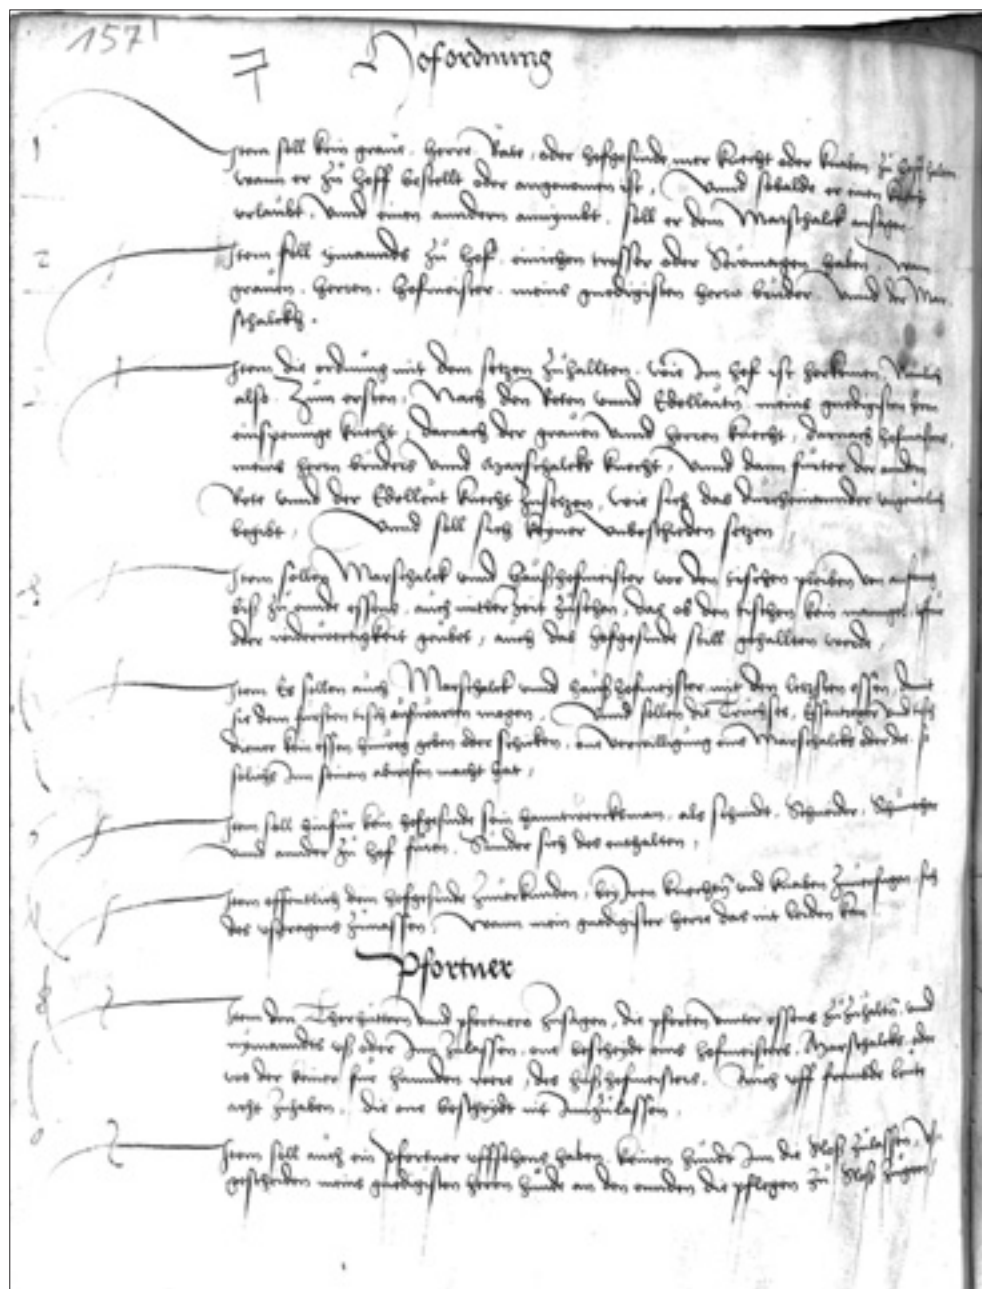 157
Hofordnung
1 Item soll kein graue, herre, Rate, oder hofgesinde, mer knecht oder knaben zu hoff haben
wann er zu hoff bestellt oder angenomen ist, Vnnd sobalde er einen knecht
verlaubt, Vnnd einen anndern annymbt, soll er dem Marschalck ansagen
2 Item soll nymanndts zu hof, eynichen trosser oder haben, von
grauen, herren, hofmeister, meins gnedigisten herrn bruder, Vnnd der Mar-
schalckh.
Item die ordnung mit dem setzen zuhallten, wie Im hof ist herkomen, Nemlich
also, Zum ersten, Nach den Reten vnnd Edelleuten, meins gnedigisten hern
einspennige knecht, darnach der grauen Vnnd herren knecht, darnach hofmeisters,
meins herrn bruders Vnnd Marschalcks knecht, Vnnd dann furter der andern
Rete vnnd der Edelleut knecht zusetzen, wie sich das durcheinannder
begibt, Vnnd soll sich keyner vnbescheiden setzen
Item sollen Marschalck vnnd haußhofmeister vor den tischen pleiben von anfang
biß zu ennde essens, auch mitler Zeit zusehen, das ob den tischen kein manngel,
oder widerwertigkeit geubet, auch das hofgesinde still gehallten werde,
Item Es sollen auch Marschalck vnnd haußhofmeyster mit den letzsten essen, damit
sie dem fursten tisch aufwarten mogen, Vnnd sollen die Truchses, Essentrager vnd tisch
diener kein essen hinweg geben oder schicken, on verwilligung eins Marschalcks oder des, so
solichs Inn seinem abwesen macht hat,
Item soll hinfur kein hofgesinde sein hanntwercksman, als schmidt, Schneider, Schuster
vnnd annder zu hof furen, Sunder sich des enthalten,
Item offentlich dem hofgesinde zuuerkunden, bey Iren knechten vnd knaben zuuerfugen, sich
des vßtragens zumassen, Wann mein gnedigister herre das nit leiden kan
Pfortner
Item den Thorhuttern Vnnd pfortnern zusagen, die pforten vnnter essens zuzuhalten, vnd
nymanndts vß oder Inn zulassen, one bescheyde eins hofmeisters, Marschalcks, oder
wo der keiner fur hannden were, des haußhofmeisters, Auch vff frembde leute
acht zuhaben, die one bescheydt nit Innzulassen,
Item soll auch ein Pfortner vffsehens haben, keinen hunde Inn die Sloß zulassen, vß-
gescheiden meins gnedigisten herrn hunde an den ennden die pflegen zu Sloß zugeen